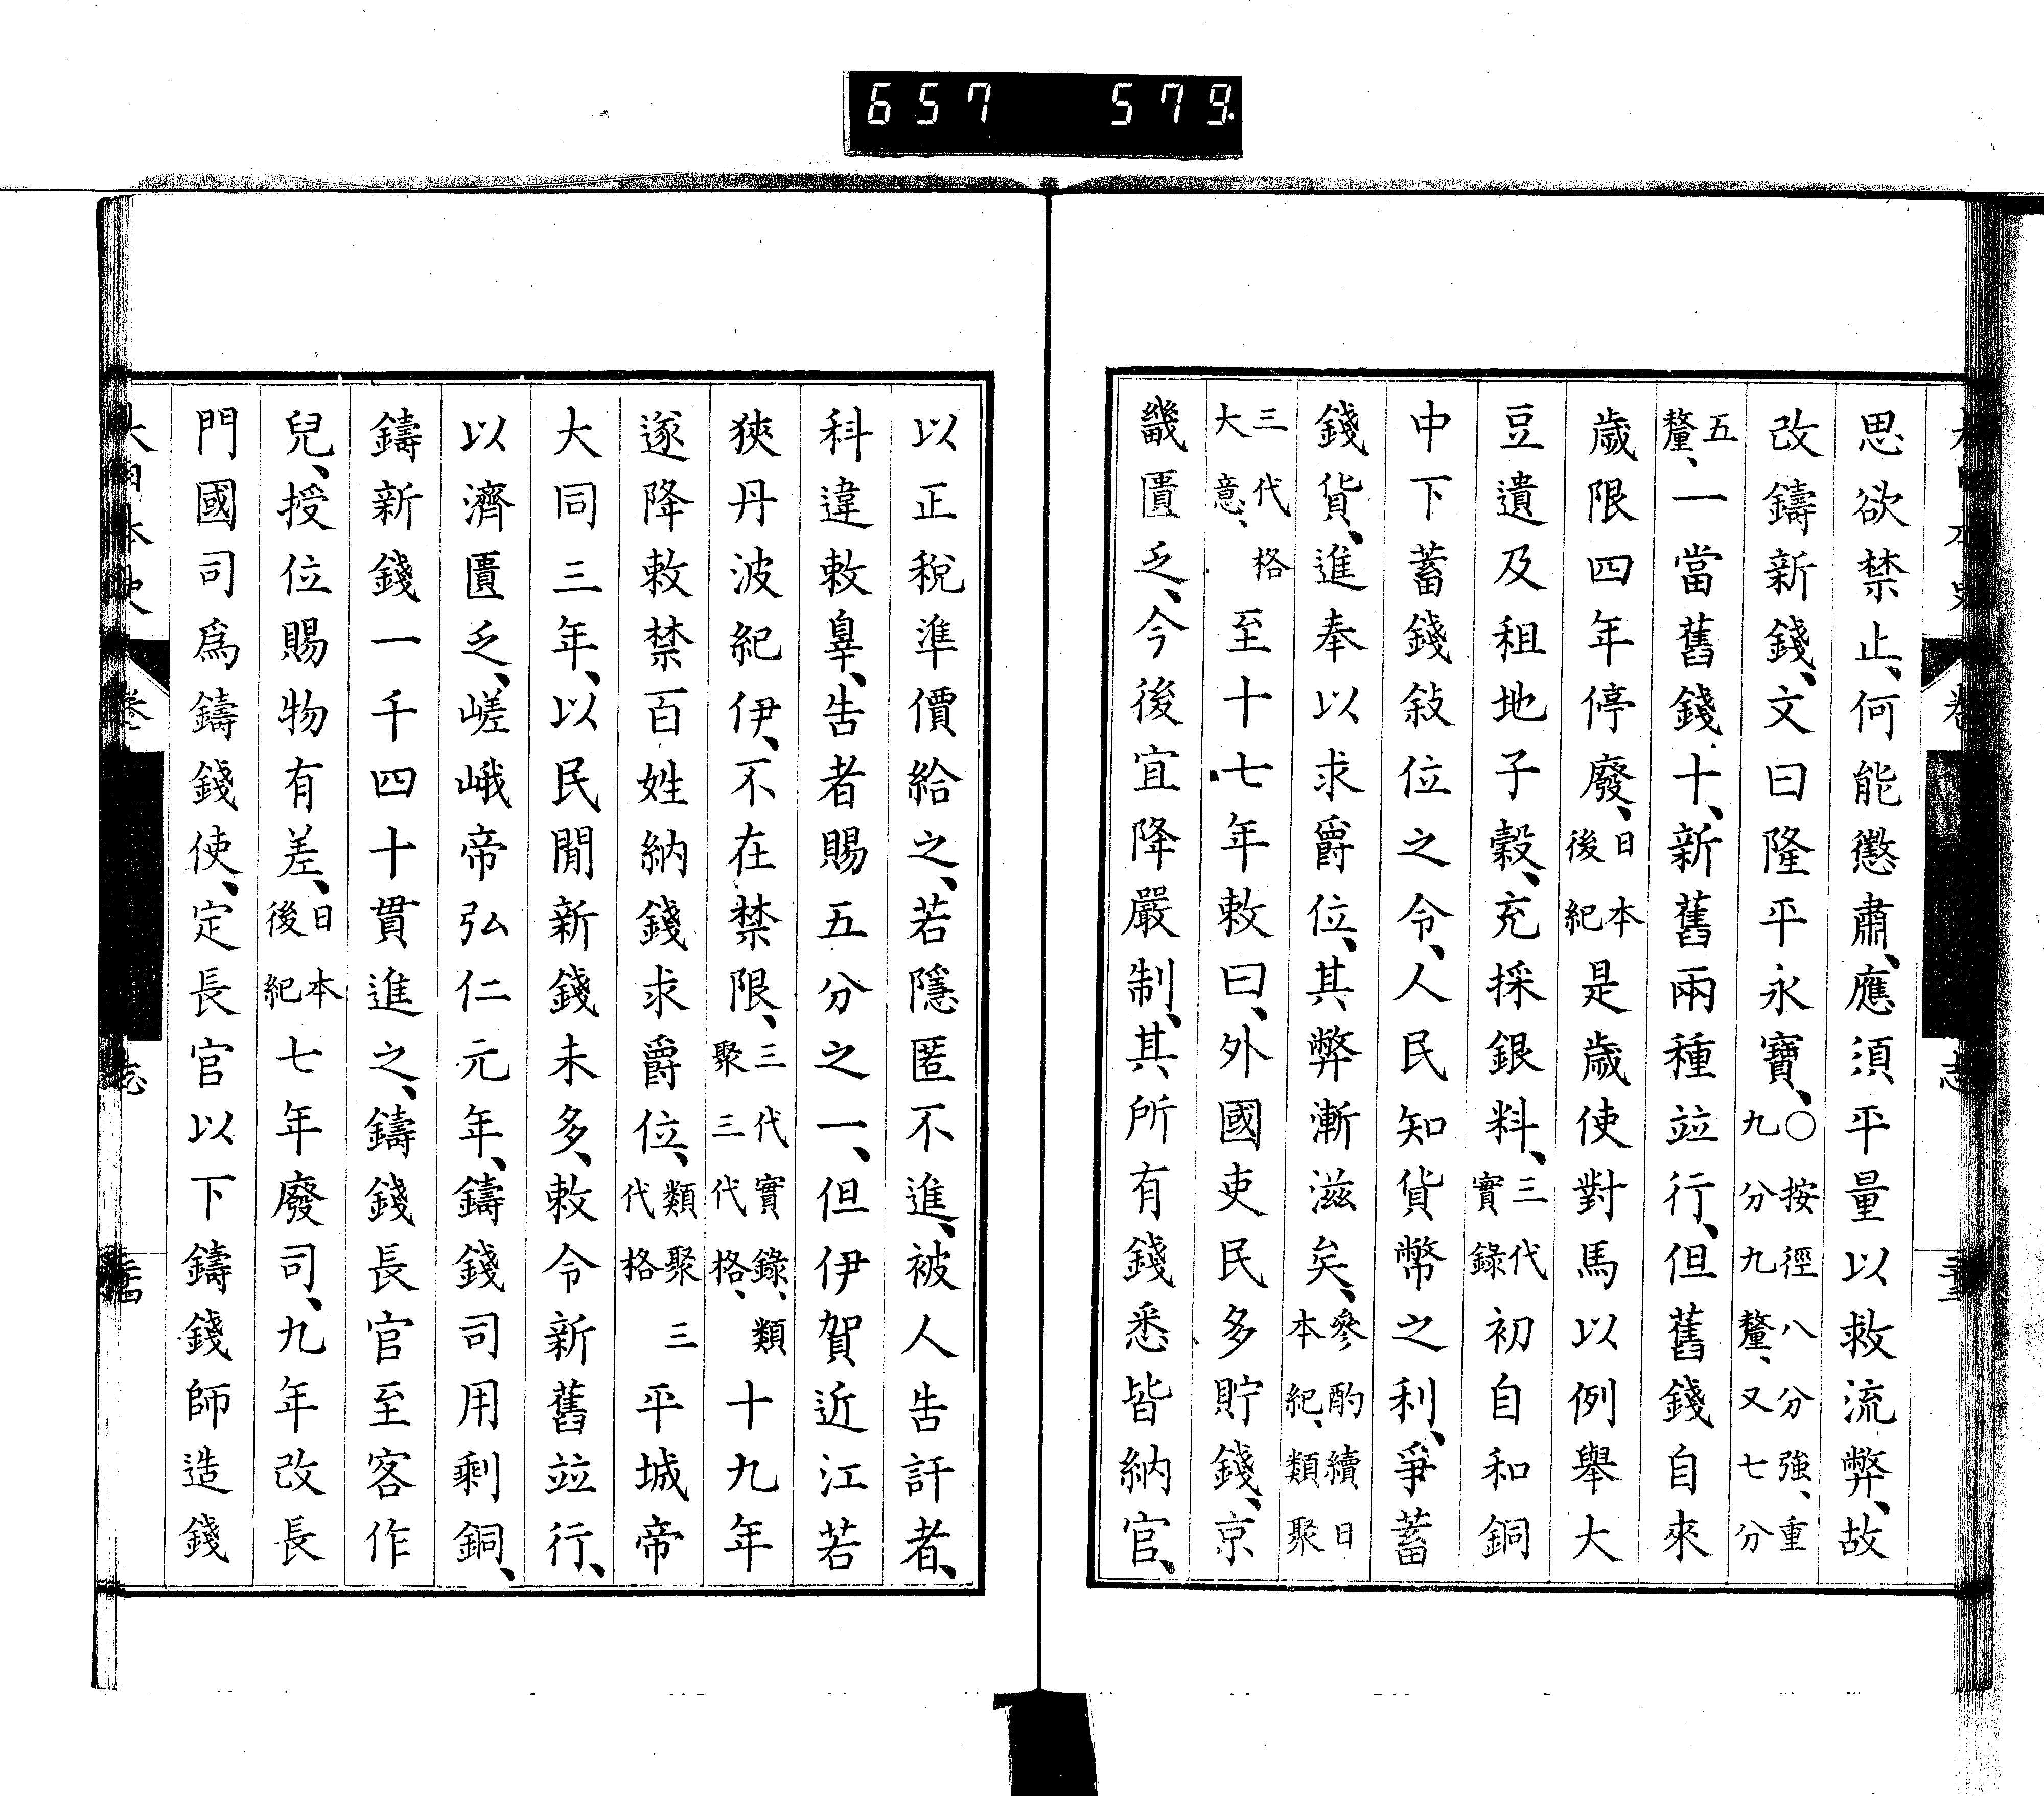 657 579.
思欲禁止、何能懲肅、應須平量以救流弊、故
改鑄新錢、文曰隆平永寶、○按徑八分強、重九分九釐、又七分
五釐、一當舊錢十、新舊兩種竝行、但舊錢自來
歲限四年停廢、日本後紀是歲使對馬以例舉大
豆遺及租地子穀、充採銀料、三代實錄初自和銅
中下蓄錢敍位之令、人民知貨幣之利、爭蓄
錢貨、進奉以求爵位、其弊漸滋矣、參酌續日本紀、類聚
三代格大意、至十七年敕曰、外國吏民多貯錢、京
畿匱乏、今後宜降嚴制、其所有錢悉皆納官、
以正稅準價給之、若隱匿不進、被人告訐者、
科違敕辠、告者賜五分之一、但伊賀近江若
狹丹波紀伊、不在禁限、三代實錄、類聚三代格、十九年
遂降敕禁百姓納錢求爵位、類聚三代格平城帝
大同三年、以民閒新錢未多、敕令新舊竝行、
以濟匱乏、嵯峨帝弘仁元年、鑄錢司用剩銅、
鑄新錢一千四十貫進之、鑄錢長官至客作
兒、授位賜物有差、日本後紀七年廢司、九年改長
門國司爲鑄錢使、定長官以下鑄錢師造錢
大日本史 卷 志 三十四